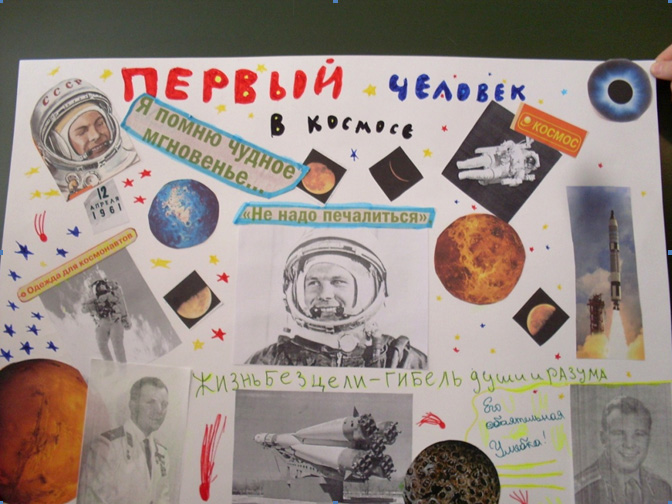 ПЕРВЫЙ ЧЕЛОВЕК
В КОСМОСЕ
СССР
Я помню чудное
мгновенье...
КОСМОС
12
АПРЕЛЯ
1961
«Не надо печалиться»
Одежда для космонавтов
ЖИЗНЬ БЕЗ ЦЕЛИ - ГИБЕЛЬ души и РАЗУМА
Его
обаятельная
Улыбка!